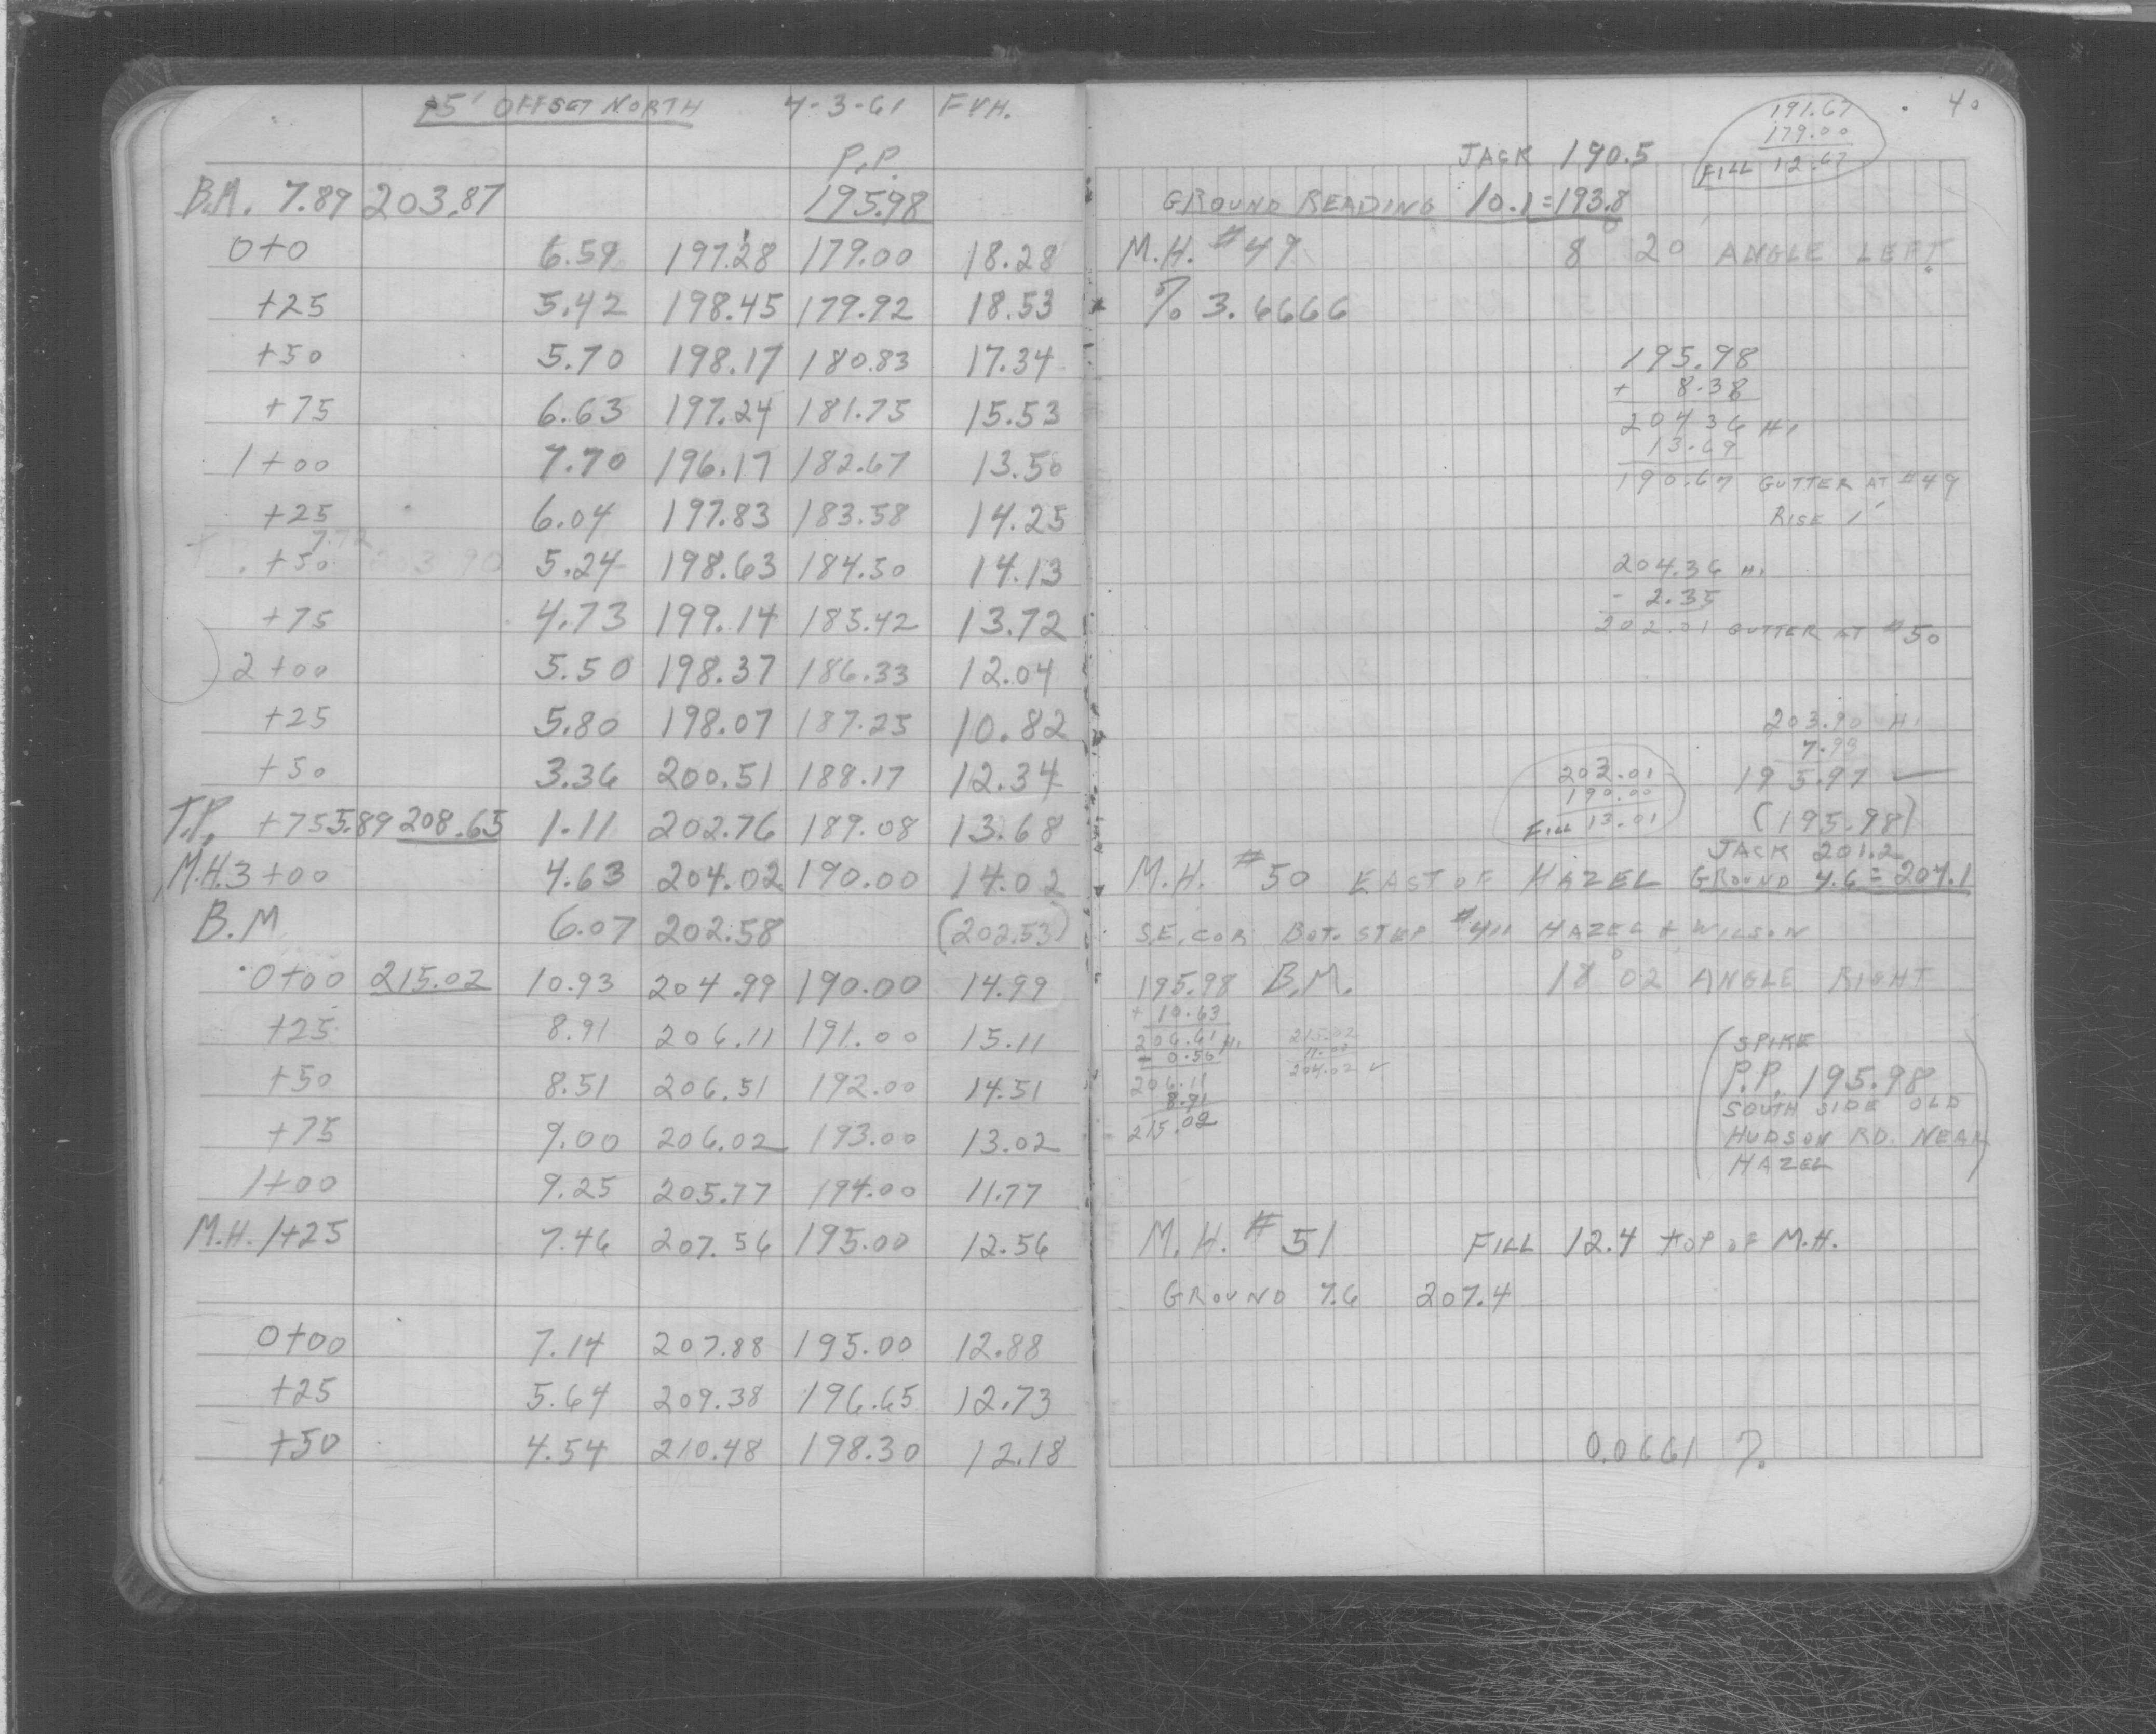 15' OFFSET NORTH 4-3-61 F.V.H.
P.P.
B.M. 7.89 203.87 195.98
0+0 6.59 197.28 179.00 18.28
+25 5.42 198.45 179.92 18.53
+50 5.70 198.17 180.83 17.34
+75 6.63 197.24 181.75 15.53
1+00 7.70 196.17 182.67 13.50
+25 6.04 197.83 183.58 14.25
7.92
+50 203.90 5.24 198.63 184.50 14.13
+75 4.73 199.14 185.42 13.72
2+00 5.50 198.37 186.33 12.04
+25 5.80 198.07 187.25 10.82
+50 3.36 200.51 188.17 12.34
T.P. +75 5.89 208.65 1.11 202.76 189.08 13.68
M.H. 3+00 4.63 204.02 190.00 14.02
B.M 6.07 202.58 (202.53)
0+00 215.02 10.93 204.99 190.00 14.99
+25 8.91 206.11 191.00 15.11
+50 8.51 206.51 192.00 14.51
+75 9.00 206.02 193.00 13.02
1+00 9.25 205.77 194.00 11.77
M.H. 1+25 7.46 207.56 195.00 12.56
0+00 7.14 207.88 195.00 12.88
+25 5.64 209.38 196.65 12.73
+50 4.54 210.48 198.30 12.18
40
191.67
179.00
FILL 12.67
JACK 190.5
GROUND READING 10.1=193.8
M.H. #49 8° 20 ANGLE LEFT
% 3.6666
195.98
+ 8.38
204 36 H.I
13.69
190.67 GUTTER AT #49
RISE 1'
204.36 H.I
- 2.35
202.01 GUTTER AT #50
203.90 H.I
7.93
195.97 ✓
(195.98)
203.01
190.00
FILL 13.01
JACK 201.2
M.H. #50 EAST OF HAZEL GROUND 4.6=204.1
S.E. COR BOT. STEP #411 HAZEL & WILSON
195.98 B.M. 18° 02 ANGLE RIGHT
+ 10.63
206.61 H.I
- 0.50
206.11
8.91
215.02
215.02
11.00
204.02 ✓
(SPIKE
P.P. 195.98
SOUTH SIDE OLD
HUDSON RD. NEAR
HAZEL)
M.H. #51 FILL 12.4 TOP OF M.H.
GROUND 7.6 207.4
0.0661 %